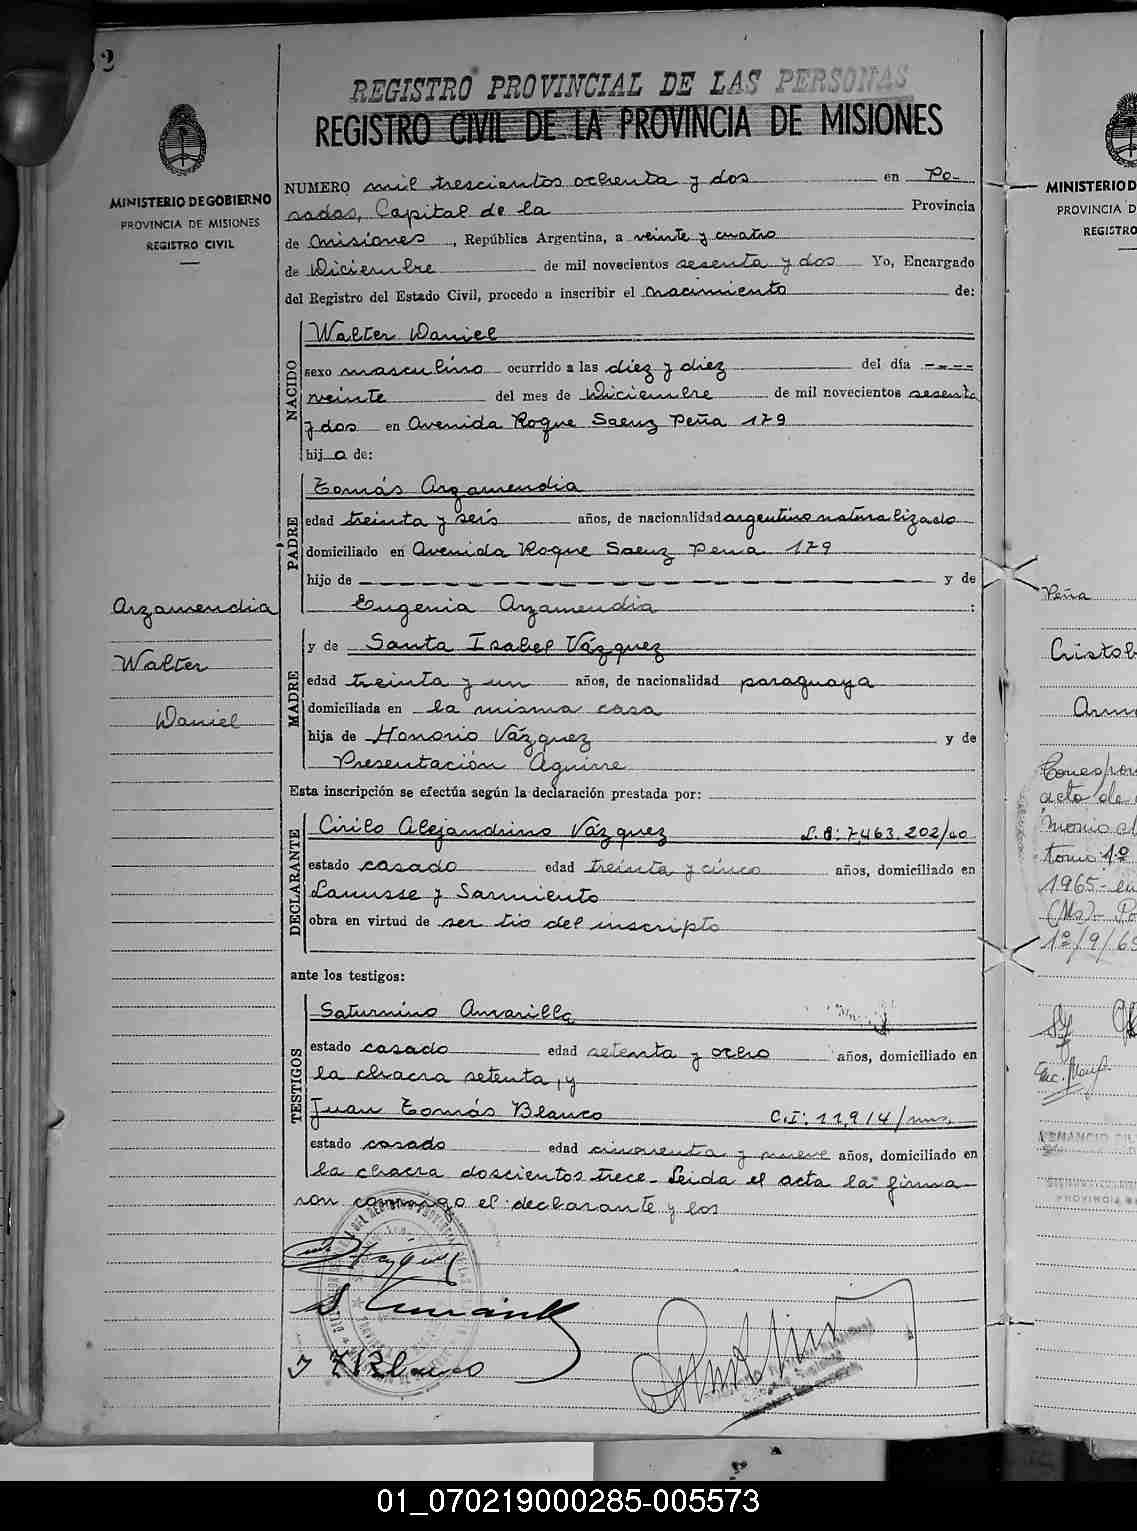 32
REGISTRO PROVINCIAL DE LAS PERSONAS
REGISTRO CIVIL DE LA PROVINCIA DE MISIONES
MINISTERIO DE GOBIERNO
PROVINCIA DE MISIONES
REGISTRO CIVIL
NUMERO mil trescientos ochenta y dos en Po-
sadas, Capital de la Provincia
de Misiones, República Argentina, a veinte y cuatro
de Diciembre de mil novecientos sesenta y dos Yo, Encargado
del Registro del Estado Civil, procedo a inscribir el nacimiento de:
NACIDO
Walter Daniel
sexo masculino ocurrido a las diez y diez del día ----
veinte del mes de Diciembre de mil novecientos sesenta
y dos en Avenida Roque Saenz Peña 179
hijo de:
PADRE
Tomás Arzamendia
edad treinta y seis años, de nacionalidad argentino naturalizado
domiciliado en Avenida Roque Saenz Pena 179
hijo de y de
Eugenia Arzamendia :
Arzamendia
Walter
Daniel
MADRE
y de Santa Isabel Vázquez
edad treinta y un años, de nacionalidad paraguaya
domiciliada en la misma casa
hija de Honorio Vázquez y de
Presentación Aguirre
Esta inscripción se efectúa según la declaración prestada por:
DECLARANTE
Cirilo Alejandrino Vázquez L.E: 7,463.202/40
estado casado edad treinta y cinco años, domiciliado en
Lanusse y Sarmiento
obra en virtud de ser tio del inscripto
ante los testigos:
TESTIGOS
Saturnino Amarilla
estado casado edad setenta y ocho años, domiciliado en
la chacra setenta, y
Juan Tomás Blanco C.I: 11,914/mns,
estado casado edad cincuenta y nueve años, domiciliado en
la chacra doscientos trece. Leida el acta la firma-
ron conmigo el declarante y los
MINISTERIO D
PROVINCIA D
REGISTRO
Peña
Cristob
acta de
monio
tomo 1º
1965- en
(Ms)- Po
1º/9/65
VENANCIO
PROVINCIA
01_070219000285-005573